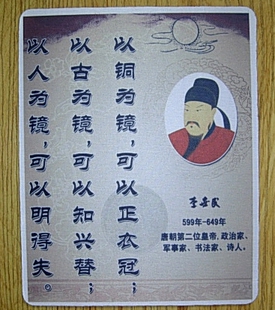 以铜为镜，可以正衣冠；
以古为镜，可以知兴替；
以人为镜，可以明得失。
李世民
599年-649年
唐朝第二位皇帝，政治家、
军事家、书法家、诗人。